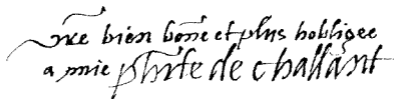 vre bien bone et plus hobligee
a mie phrte de challant